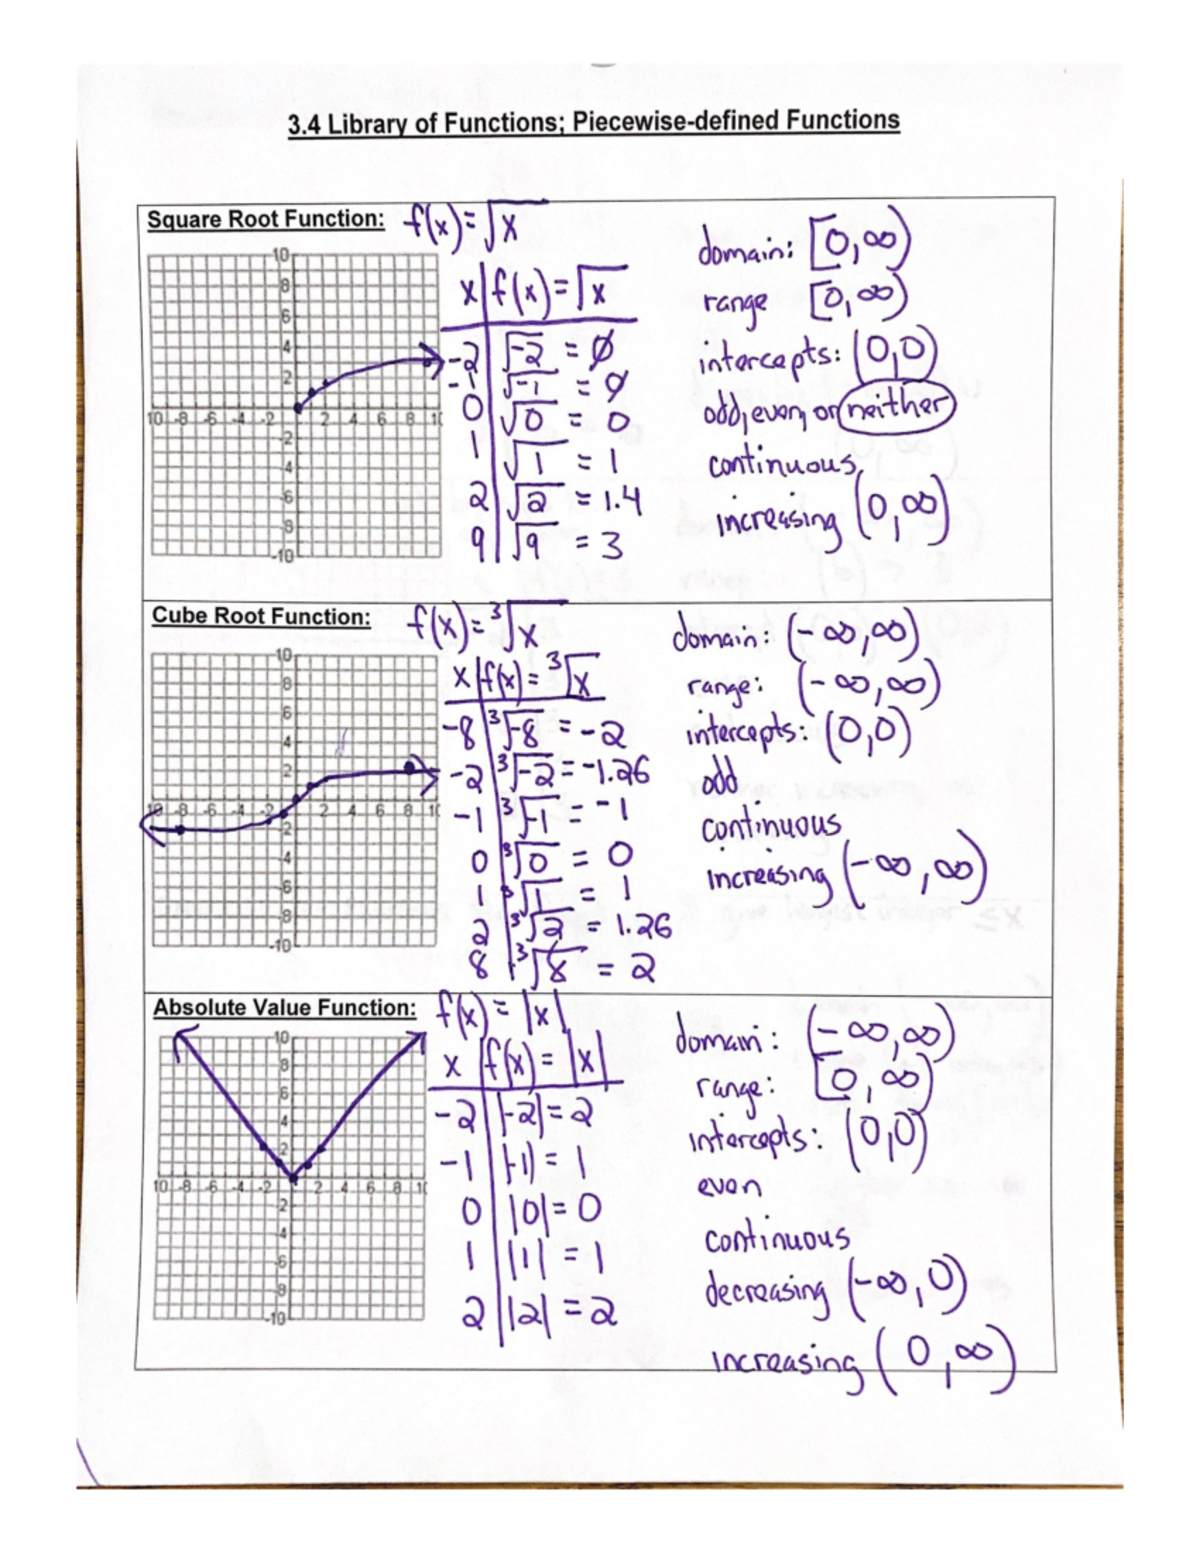 3.4 Library of Functions; Piecewise-defined Functions
Square Root Function: f(x)=√x
x | f(x)=√x
-2 | √-2 = ∅
-1 | √-1 = ∅
0 | √0 = 0
1 | √1 = 1
2 | √2 = 1.4
9 | √9 = 3
domain: [0,∞)
range [0,∞)
intercepts: (0,0)
odd, even, or neither
continuous
increasing (0,∞)
10
8
6
4
2
10 -8 -6 -4 -2 2 4 6 8 10
-2
-4
-6
-8
-10
Cube Root Function: f(x)=³√x
x | f(x)=³√x
-8 | ³√-8 = -2
-2 | ³√-2 = -1.26
-1 | ³√-1 = -1
0 | ³√0 = 0
1 | ³√1 = 1
2 | ³√2 = 1.26
8 | ³√8 = 2
domain: (-∞,∞)
range: (-∞,∞)
intercepts: (0,0)
odd
continuous
increasing (-∞,∞)
10
8
6
4
2
10 -8 -6 -4 -2 2 4 6 8 10
-2
-4
-6
-8
-10
Absolute Value Function: f(x)=|x|
x | f(x)=|x|
-2 | |-2|=2
-1 | |-1|=1
0 | |0|=0
1 | |1|=1
2 | |2|=2
domain: (-∞,∞)
range: [0,∞)
intercepts: (0,0)
even
continuous
decreasing (-∞,0)
increasing (0,∞)
10
8
6
4
2
10 -8 -6 -4 -2 2 4 6 8 10
-2
-4
-6
-8
-10